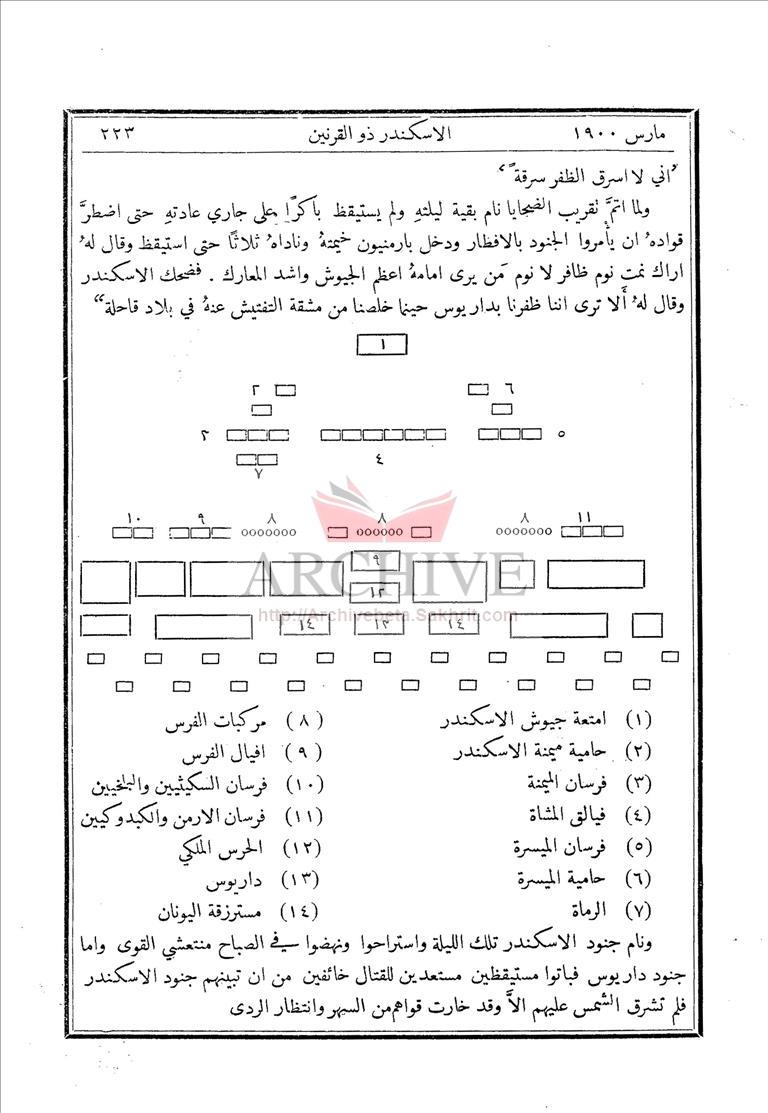 مارس ١٩٠٠ الاسكندر ذو القرنين ٢٢٣
"اني لا اسرق الظفر سرقةً"
ولما اتمَّ تقريب الضحايا نام بقية ليلتهِ ولم يستيقظ باكرًا على جاري عادتهِ حتى اضطرَّ
قوادهُ ان يأمروا الجنود بالافطار ودخل بارمنيون خيمتهُ وناداهُ ثلاثًا حتى استيقظ وقال لهُ
اراك نمت نوم ظافر لا نوم مَن يرى امامهُ اعظم الجيوش واشد المعارك . فضحك الاسكندر
وقال لهُ أَلا ترى اننا ظفرنا بداريوس حينما خلصنا من مشقة التفتيش عنهُ في بلاد قاحلة"
١
٢ ٦
٢ ٥
٧ ٤
١٠ ٩ ٨ ٨ ٨ ١١
٩
ARCHIVE
١٢
http://Archivebeta.Sakhrit.com
١٤ ١٣ ١٤
(١) امتعة جيوش الاسكندر (٨) مركبات الفرس
(٢) حامية ميمنة الاسكندر (٩) افيال الفرس
(٣) فرسان الميمنة (١٠) فرسان السكيثيين والبلخيين
(٤) فيالق المشاة (١١) فرسان الارمن والكبدوكيين
(٥) فرسان الميسرة (١٢) الحرس الملكي
(٦) حامية الميسرة (١٣) داريوس
(٧) الرماة (١٤) مسترزقة اليونان
ونام جنود الاسكندر تلك الليلة واستراحوا ونهضوا في الصباح منتعشي القوى واما
جنود داريوس فباتوا مستيقظين مستعدين للقتال خائفين من ان تبينهم جنود الاسكندر
فلم تشرق الشمس عليهم الاَّ وقد خارت قواهم من السهر وانتظار الردى